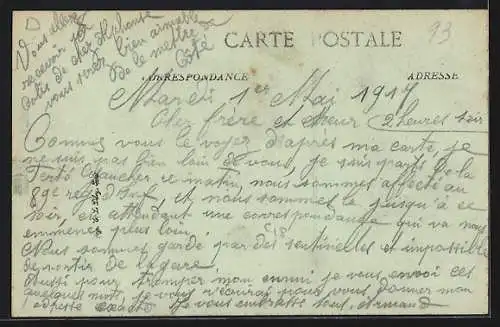 Vous allez
recevoir
de cher Alphonse
vous serez bien aimable
de le mettre
Côté
93
CARTE POSTALE
CORRESPONDANCE
ADRESSE
Mardi 1er Mai 1917
Cher frère et Sœur 2 heures soir
Comme vous le voyez d'après ma carte je
ne suis pas bien loin de vous, je suis parti de la
Ferté Gaucher ce matin, nous sommes affecté au
89e reg d'Inf et nous sommes là jusqu'à ce
soir, en attendant une correspondance qui va nous
emmener plus loin.
Nous sommes gardé par des sentinelles et impossible
de sortir de la gare.
Aussi pour tromper mon ennui je vous envoi ces
quelques mots, je vous récrirai pour vous donner mon
adresse exacte. Je vous embrasse tous. Armand